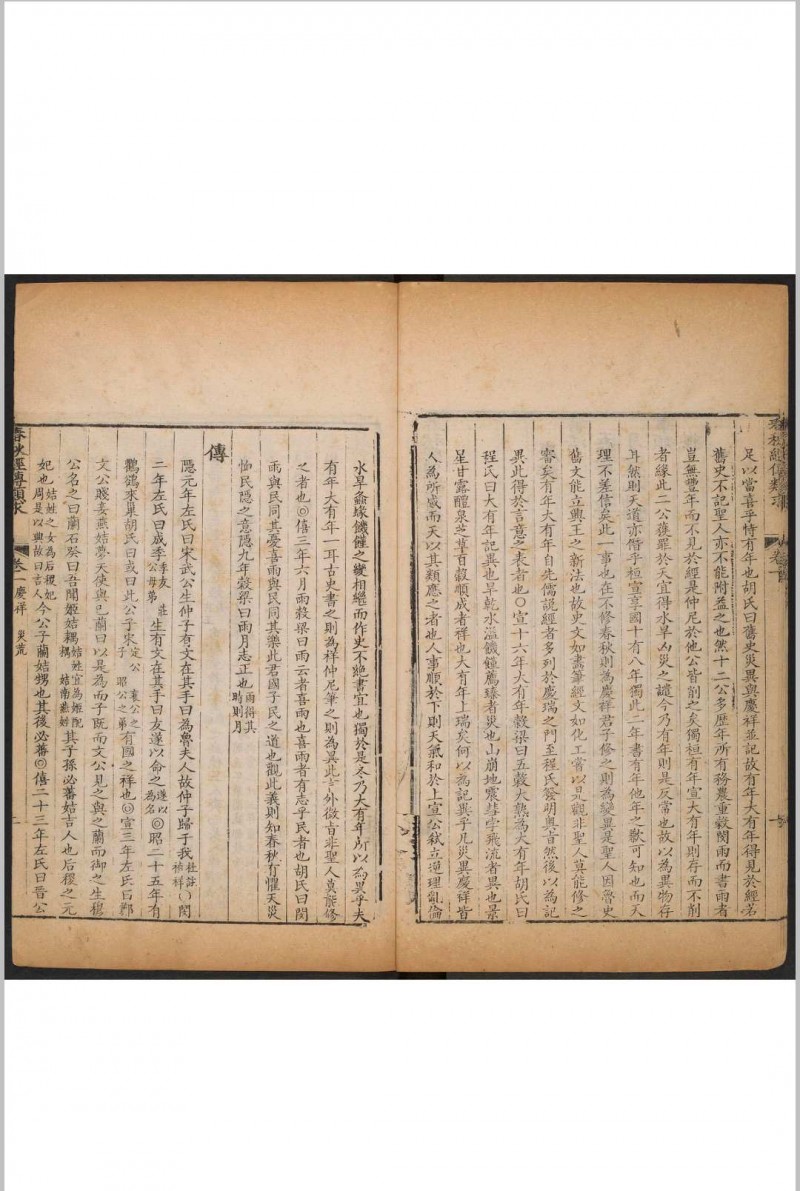 足以當喜乎恃有年也胡氏曰舊史災異與慶祥並記故有年大有年得見於經若
舊史不記聖人亦不能附益之也然十二公多歷年所有務農重穀閔雨而書雨者
豈無豐年而不見於經是仲尼於他公皆削之矣獨桓有年宣大有年則存而不削
者緣此二公獲罪於天宜得水旱凶災之譴今乃有年則是反常也故以為異物存
耳然則天道亦僭乎桓宣享國十有八年獨此二年書有年他年之歉可知也而天
理不差信矣此一事也在不修春秋則為慶祥君子修之則為變異是聖人因魯史
舊文能立興王之新法也故史文如畫筆經文如化工嘗以是觀非聖人莫能修之
審矣有年大有年自先儒說經者多列於慶瑞之門至程氏發明奧旨然後以為記
異此得於言意之表者也○宣十六年大有年穀梁曰五穀大熟為大有年胡氏曰
程氏曰大有年記異也旱乾水溢饑饉薦臻者災也山崩地震彗孛飛流者異也景
星甘露醴泉芝草百穀順成者祥也大有年上瑞矣何以為記異乎凡災異慶祥皆
人為所感而天以其類應之者也人事順於下則天氣和於上宣公弑立逆理亂倫
水旱螽蝝饑饉之變相繼而作史不絕書宜也獨於是冬乃大有年所以為異乎夫
有年大有年一耳古史書之則為祥仲尼筆之則為異此言外微旨非聖人莫能修
之者也◎僖三年六月雨穀梁曰雨云者喜雨也喜雨者有志乎民者也胡氏曰閔
雨與民同其憂喜雨與民同其樂此君國子民之道也觀此義則知春秋有懼天災
恤民隱之意隱九年穀梁曰雨月志正也雨得其時則月
傳
隱元年左氏曰宋武公生仲子有文在其手曰為魯夫人故仲子歸于我杜註禎祥○閔
二年左氏曰成季季友莊公母弟生有文在其手曰友遂以命之遂以為名◎昭二十五年有
鸜鵒來巢胡氏曰或曰此公子宋定公襄公之子昭公之弟有國之祥也◎宣三年左氏曰鄭
文公賤妾燕姞夢天使與己蘭曰以是為而子既而文公見之與之蘭而御之生穆
公名之曰蘭石癸曰吾聞姬姞耦姞姓宜為姬配耦姞南燕姓其子孫必蕃姞吉人也后稷之元
妃也姞姓之女為后稷妃周是以興故曰吉人今公子蘭姞甥也其後必蕃◎僖二十三年左氏曰晉公
春秋經傳類求
卷一慶祥
災荒